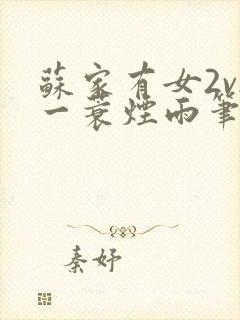 蘇家有女2v
一蓑煙雨筆
秦妤